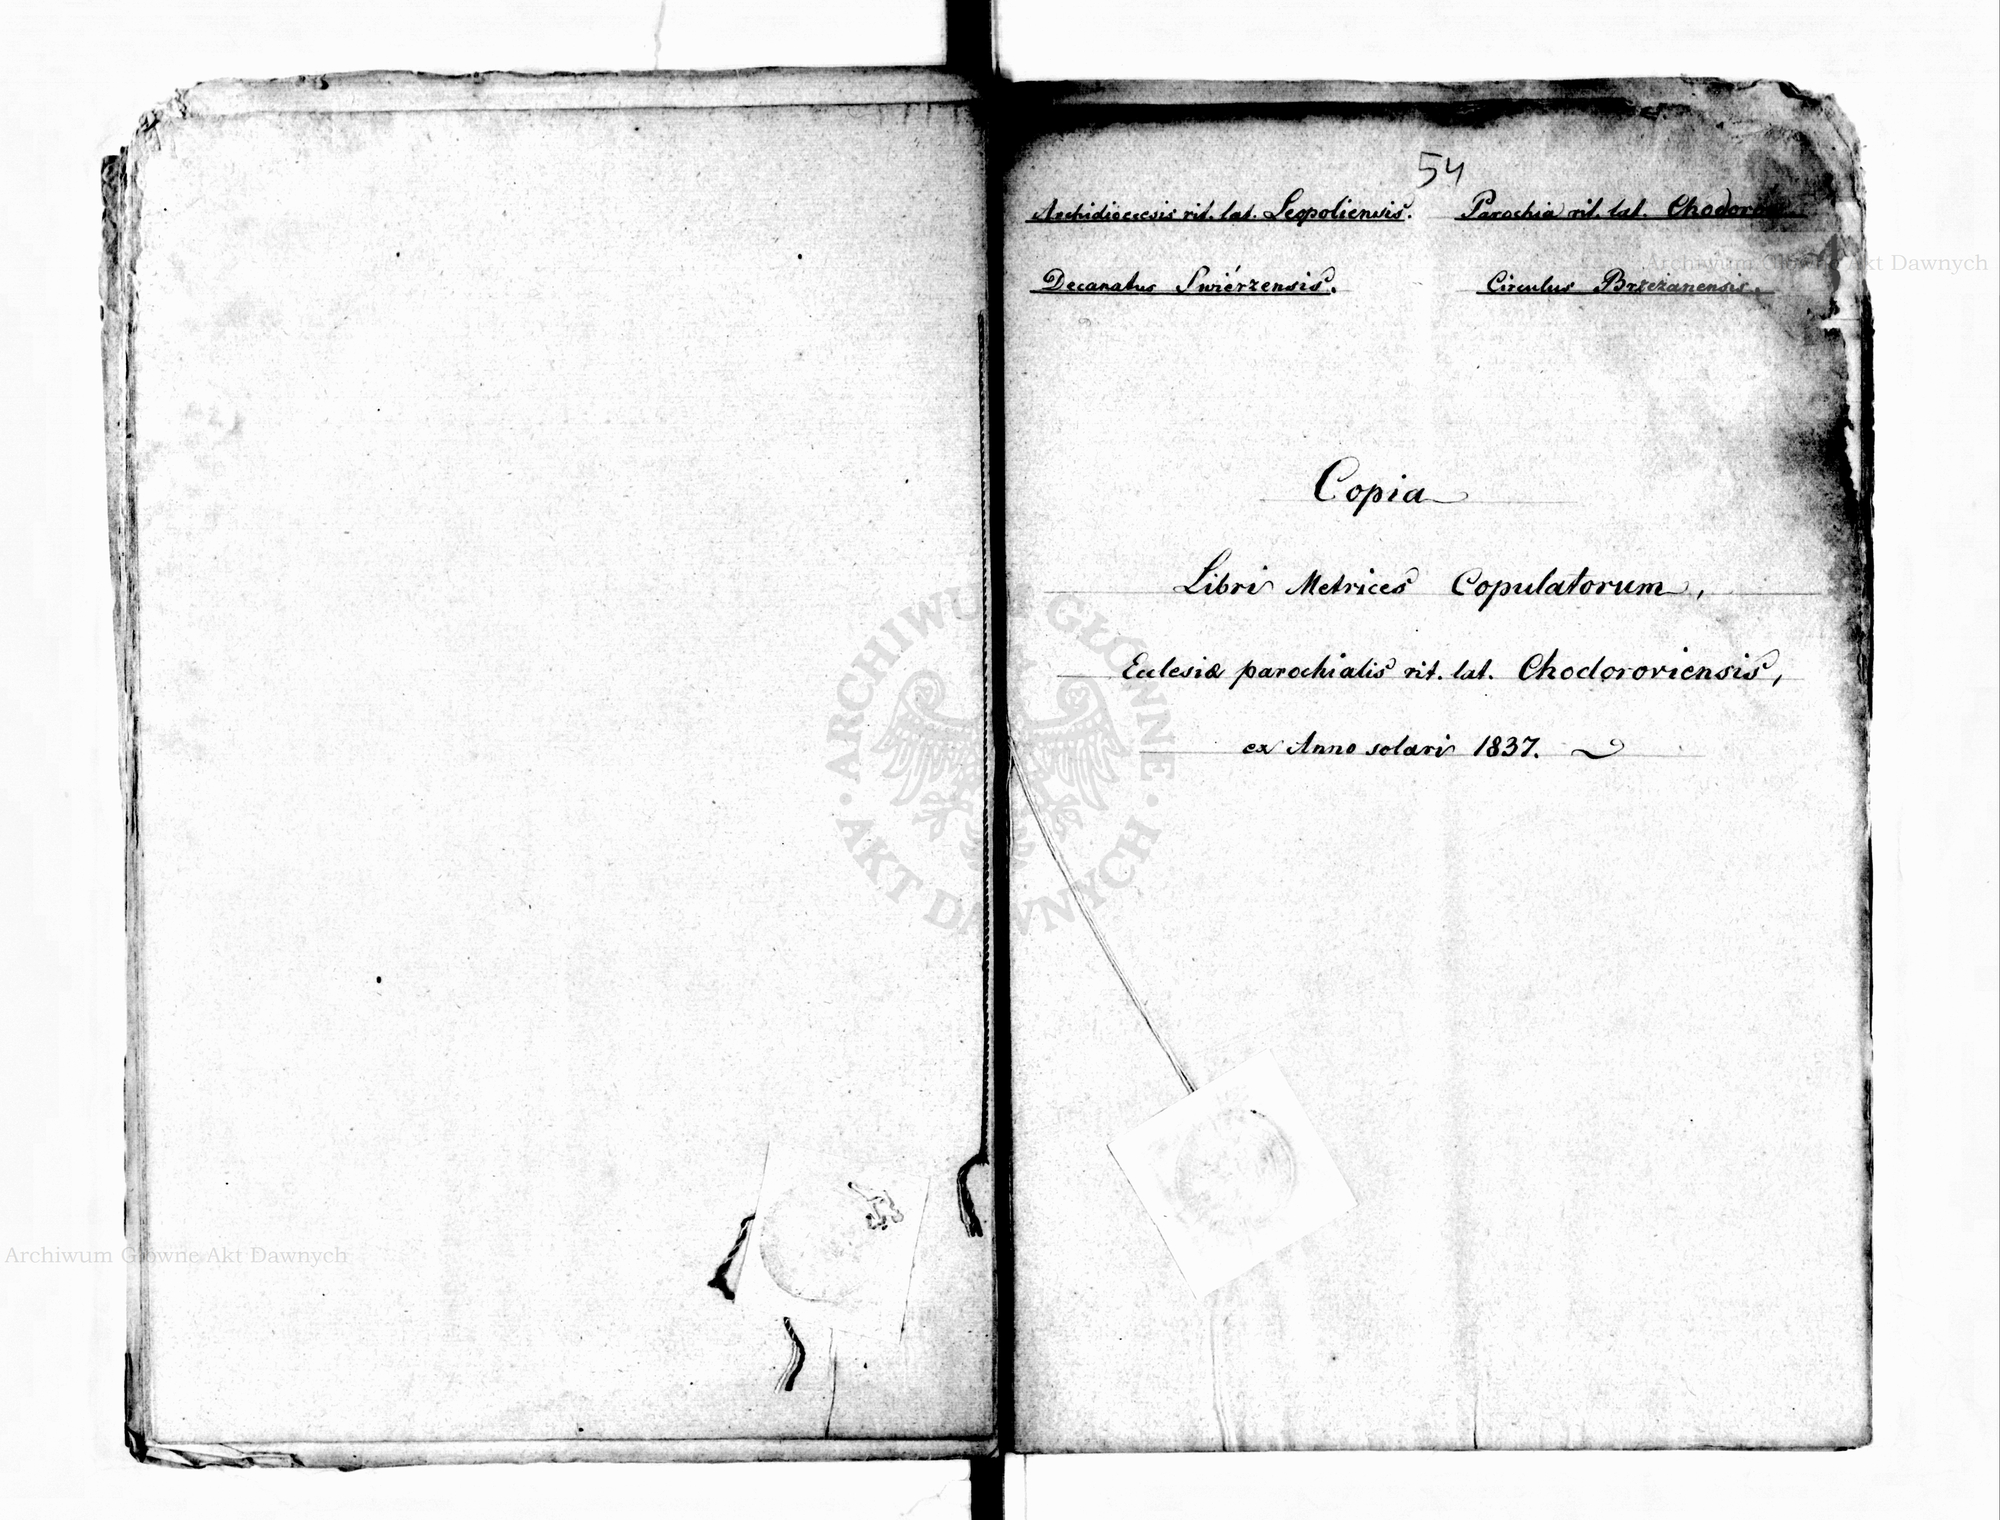 54
Archidiœcesis rit. lat. Leopoliensis. Parochia rit. lat.
Decanatus Swiérzensis. Circulus Brzeżanensis.
Copia
Libri Metrices Copulatorum,
Ecclesiæ parochialis rit. lat. Chodoroviensis,
ex Anno solari 1837.
Archiwum Główne Akt Dawnych
ARCHIWUM GŁÓWNE
AKT DAWNYCH
Archiwum Główne Akt Dawnych